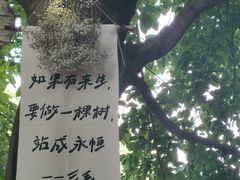 如果有来生，
要做一棵树，
站成永恒
——三毛